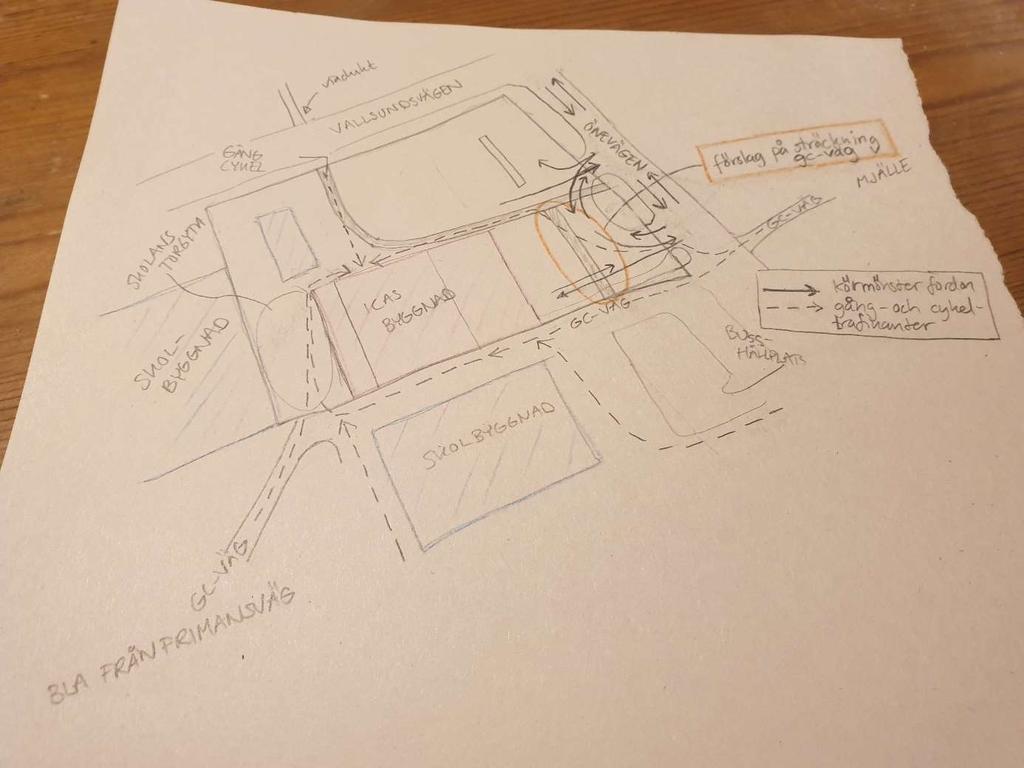 viadukt
VALLSUNDSVÄGEN
GÅNG
CYKEL
ÖNEVÄGEN
förslag på sträckning
gc-väg
MJÄLLE
GC-VÄG
SKOLANS
TORGYTA
ICAS
BYGGNAD
körmönster fordon
gång- och cykel-
trafikanter
GC-VÄG
SKOL-
BYGGNAD
BUSS-
HÅLLPLATS
SKOLBYGGNAD
GC-VÄG
BLA FRÅN FRIMANSVÄG